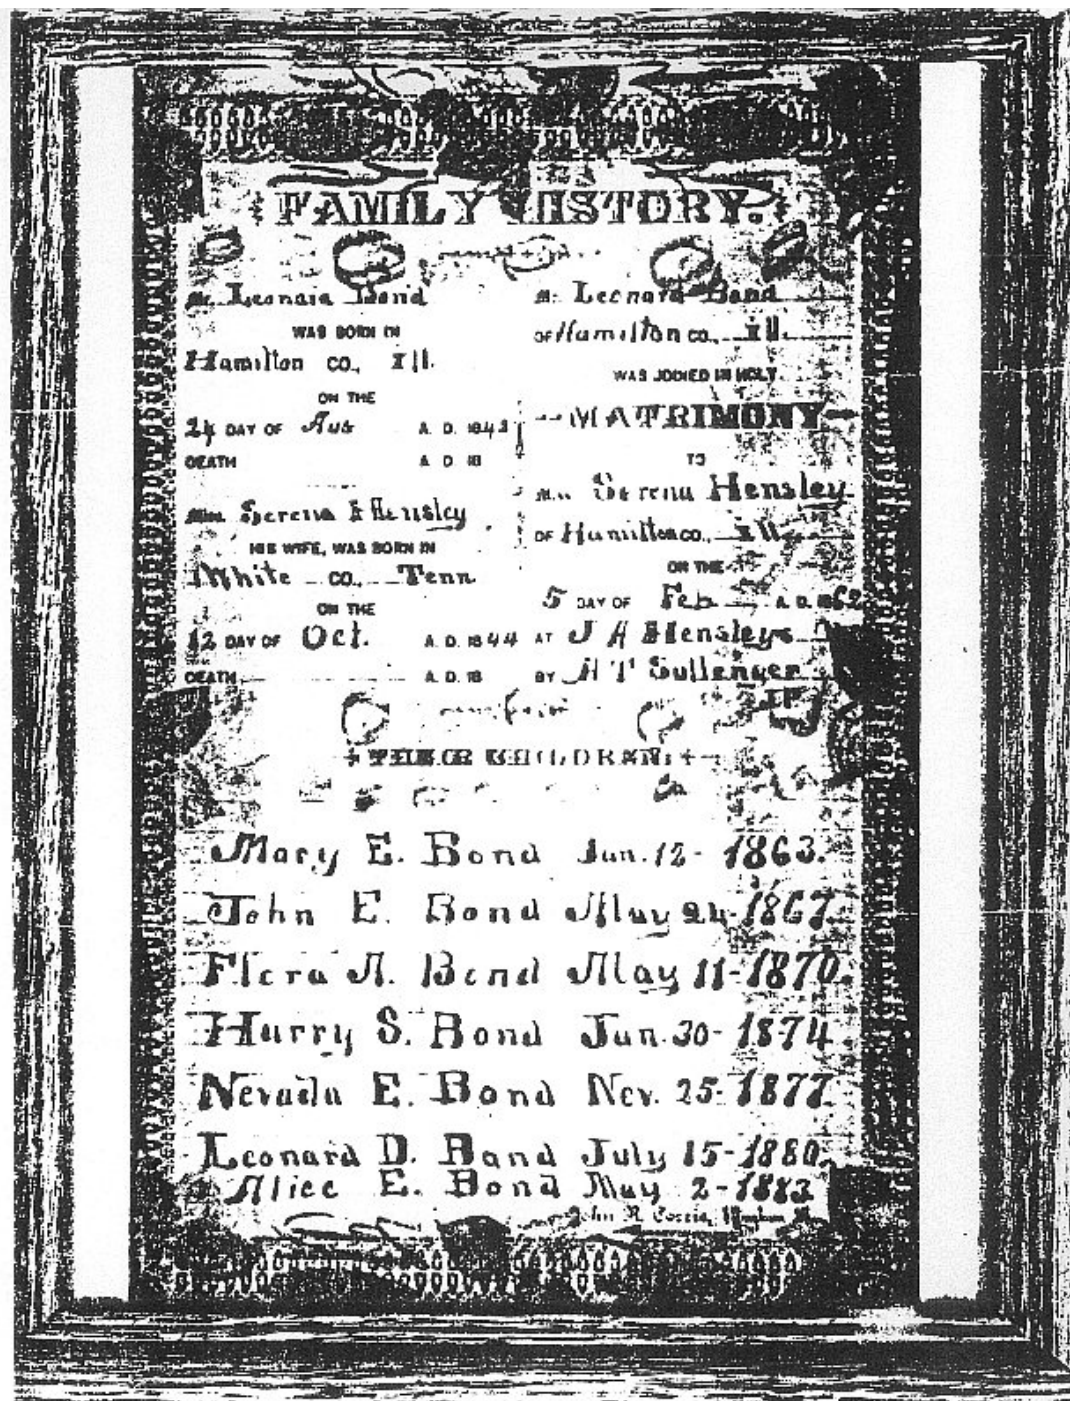 FAMILY HISTORY.
Mr. Leonard Bond
WAS BORN IN
Hamilton CO., Ill.
ON THE
24 DAY OF Aug A. D. 1843
DEATH A. D. 18
Miss Serena E Hensley
HIS WIFE, WAS BORN IN
White CO., Tenn.
ON THE
12 DAY OF Oct. A. D. 1844
DEATH A. D. 18
Mr. Leonard Bond
OF Hamilton CO., Ill.
WAS JOINED IN HOLY
MATRIMONY
TO
Miss Serena Hensley
OF Hamilton CO., Ill.
ON THE
5 DAY OF Feb A. D. 1862
AT J A Hensleys
BY H T Sullenger
THEIR CHILDREN:
Mary E. Bond Jan. 12 - 1863.
John E. Bond May 24 - 1867.
Flora A. Bond May 11 - 1870.
Harry S. Bond Jan. 30 - 1874
Nevada E. Bond Nov. 25 - 1877.
Leonard D. Bond July 15 - 1880.
Alice E. Bond May 2 - 1883
John R.